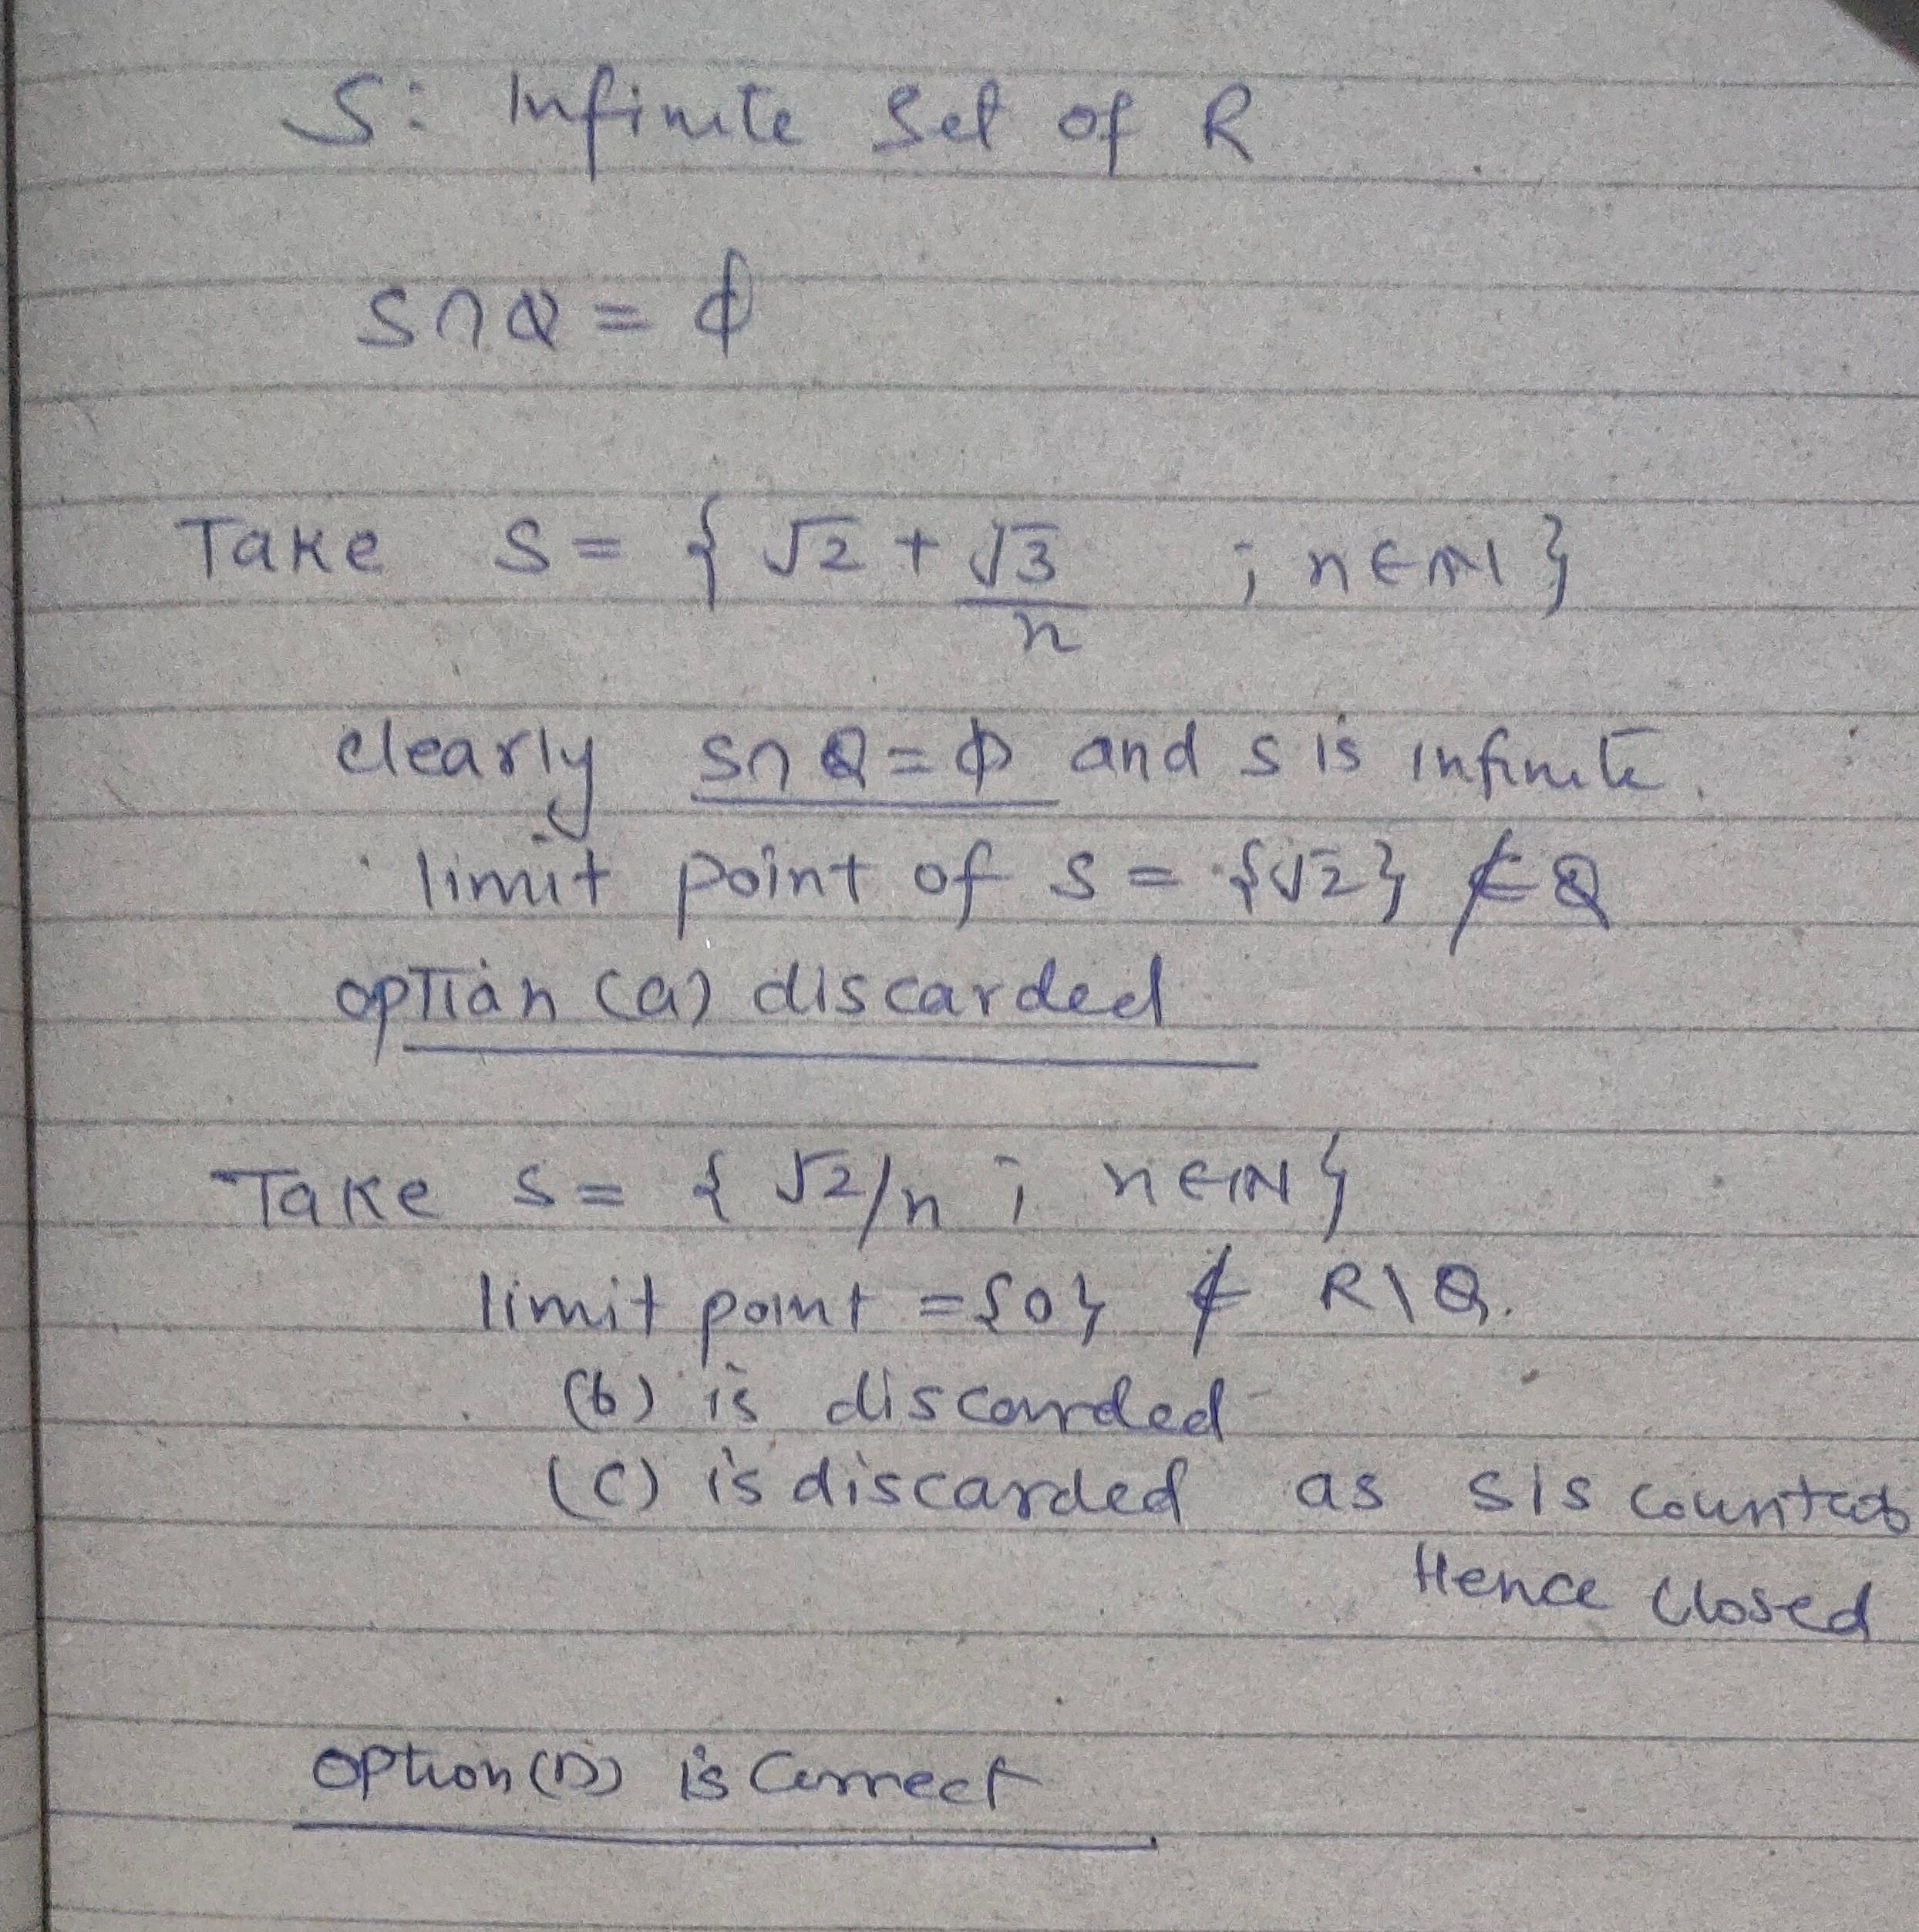 S: Infinite Set of R
S∩Q = ϕ
Take S = { √2 + √3/n ; n∈N }
clearly S∩Q = ϕ and S is infinite.
limit point of S = {√2} ⊄ Q
option (a) discarded
Take S = { √2/n ; n∈IN }
limit point = {0} ⊄ R\Q.
(b) is discarded
(C) is discarded as S is
Hence Closed
option (D) is Correct